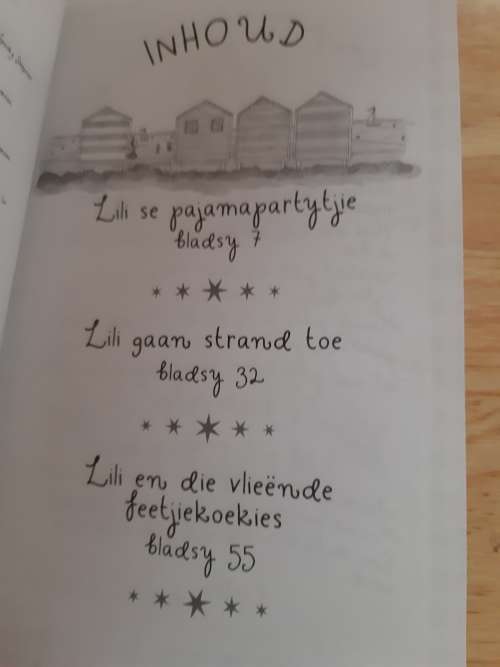 INHOUD
Lili se pajamapartytjie
bladsy 7
Lili gaan strand toe
bladsy 32
Lili en die vlieënde
feetjiekoekies
bladsy 55